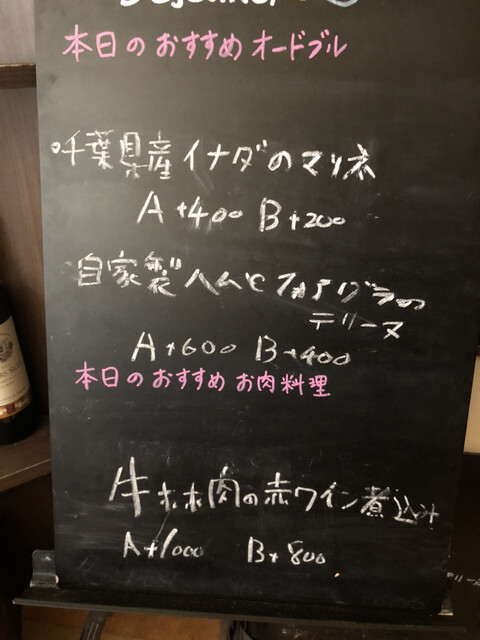 Déjeuner
本日のおすすめオードブル
千葉県産イナダのマリネ
A+400 B+200
自家製ハムとフォアグラの
テリーヌ
A+600 B+400
本日のおすすめお肉料理
牛ホホ肉の赤ワイン煮込み
A+1000 B+800